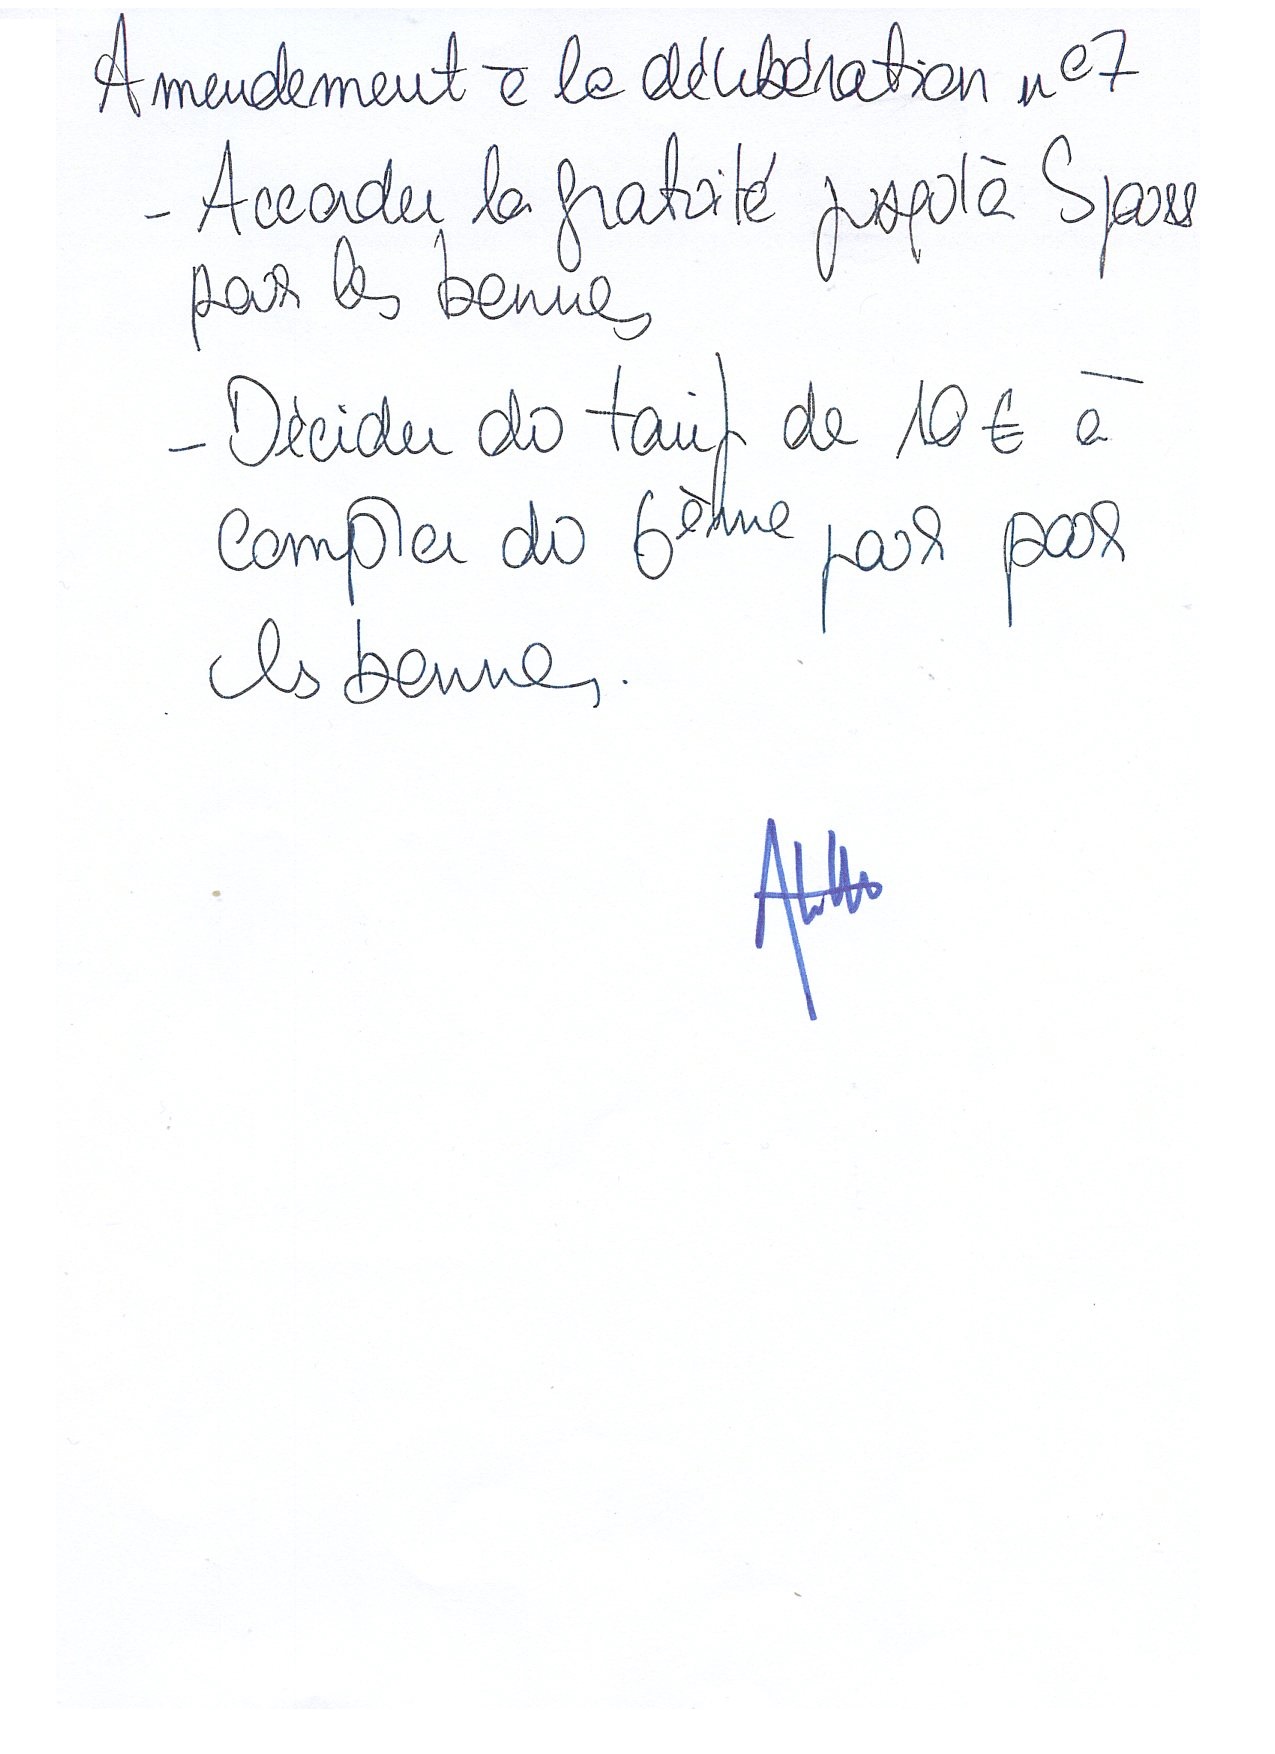 Amendement à la délibération n°7
- Accorder la gratuité jusqu'à 5 jours
pour les bennes
- Décider du tarif de 10€ à
compter du 6ème jour pour
les bennes.